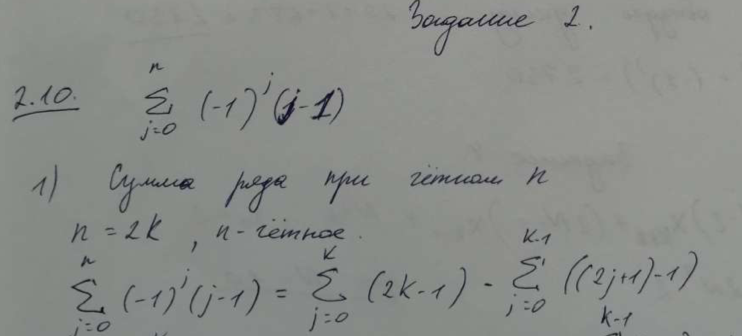 Задание 2.
2.10. \sum_{j=0}^{n} (-1)^j (j-1)
1) Сумма ряда при чётном n
n = 2k, n - чётное.
\sum_{j=0}^{n} (-1)^j (j-1) = \sum_{j=0}^{k} (2k-1) - \sum_{j=0}^{k-1} ((2j+1)-1)
k-1